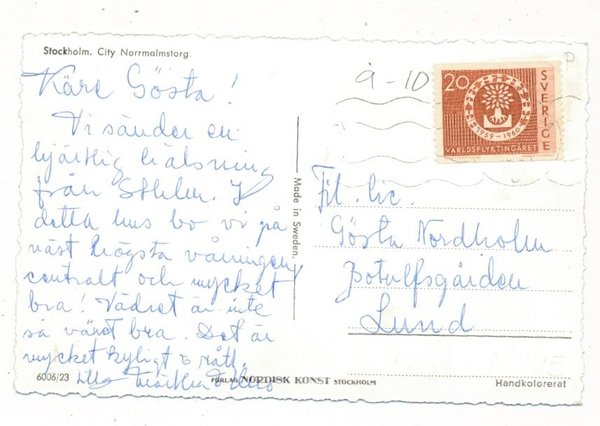 Stockholm. City Norrmalmstorg
Käre Gösta!
Vi sänder en
hjärtlig hälsning
från Sthlm. I
detta hus bo vi på
näst högsta våningen,
centralt och mycket
bra! Vädret är inte
så värst bra. Det är
mycket kyligt o rått.
6006/23
FÖRLAG NORDISK KONST STOCKHOLM
Made in Sweden.
9-10
20
SVERIGE
1959-1960
VÄRLDSFLYKTINGÅRET
Fil. lic.
Gösta Nordholm
Botulfsgården
Lund
Handkolorerat